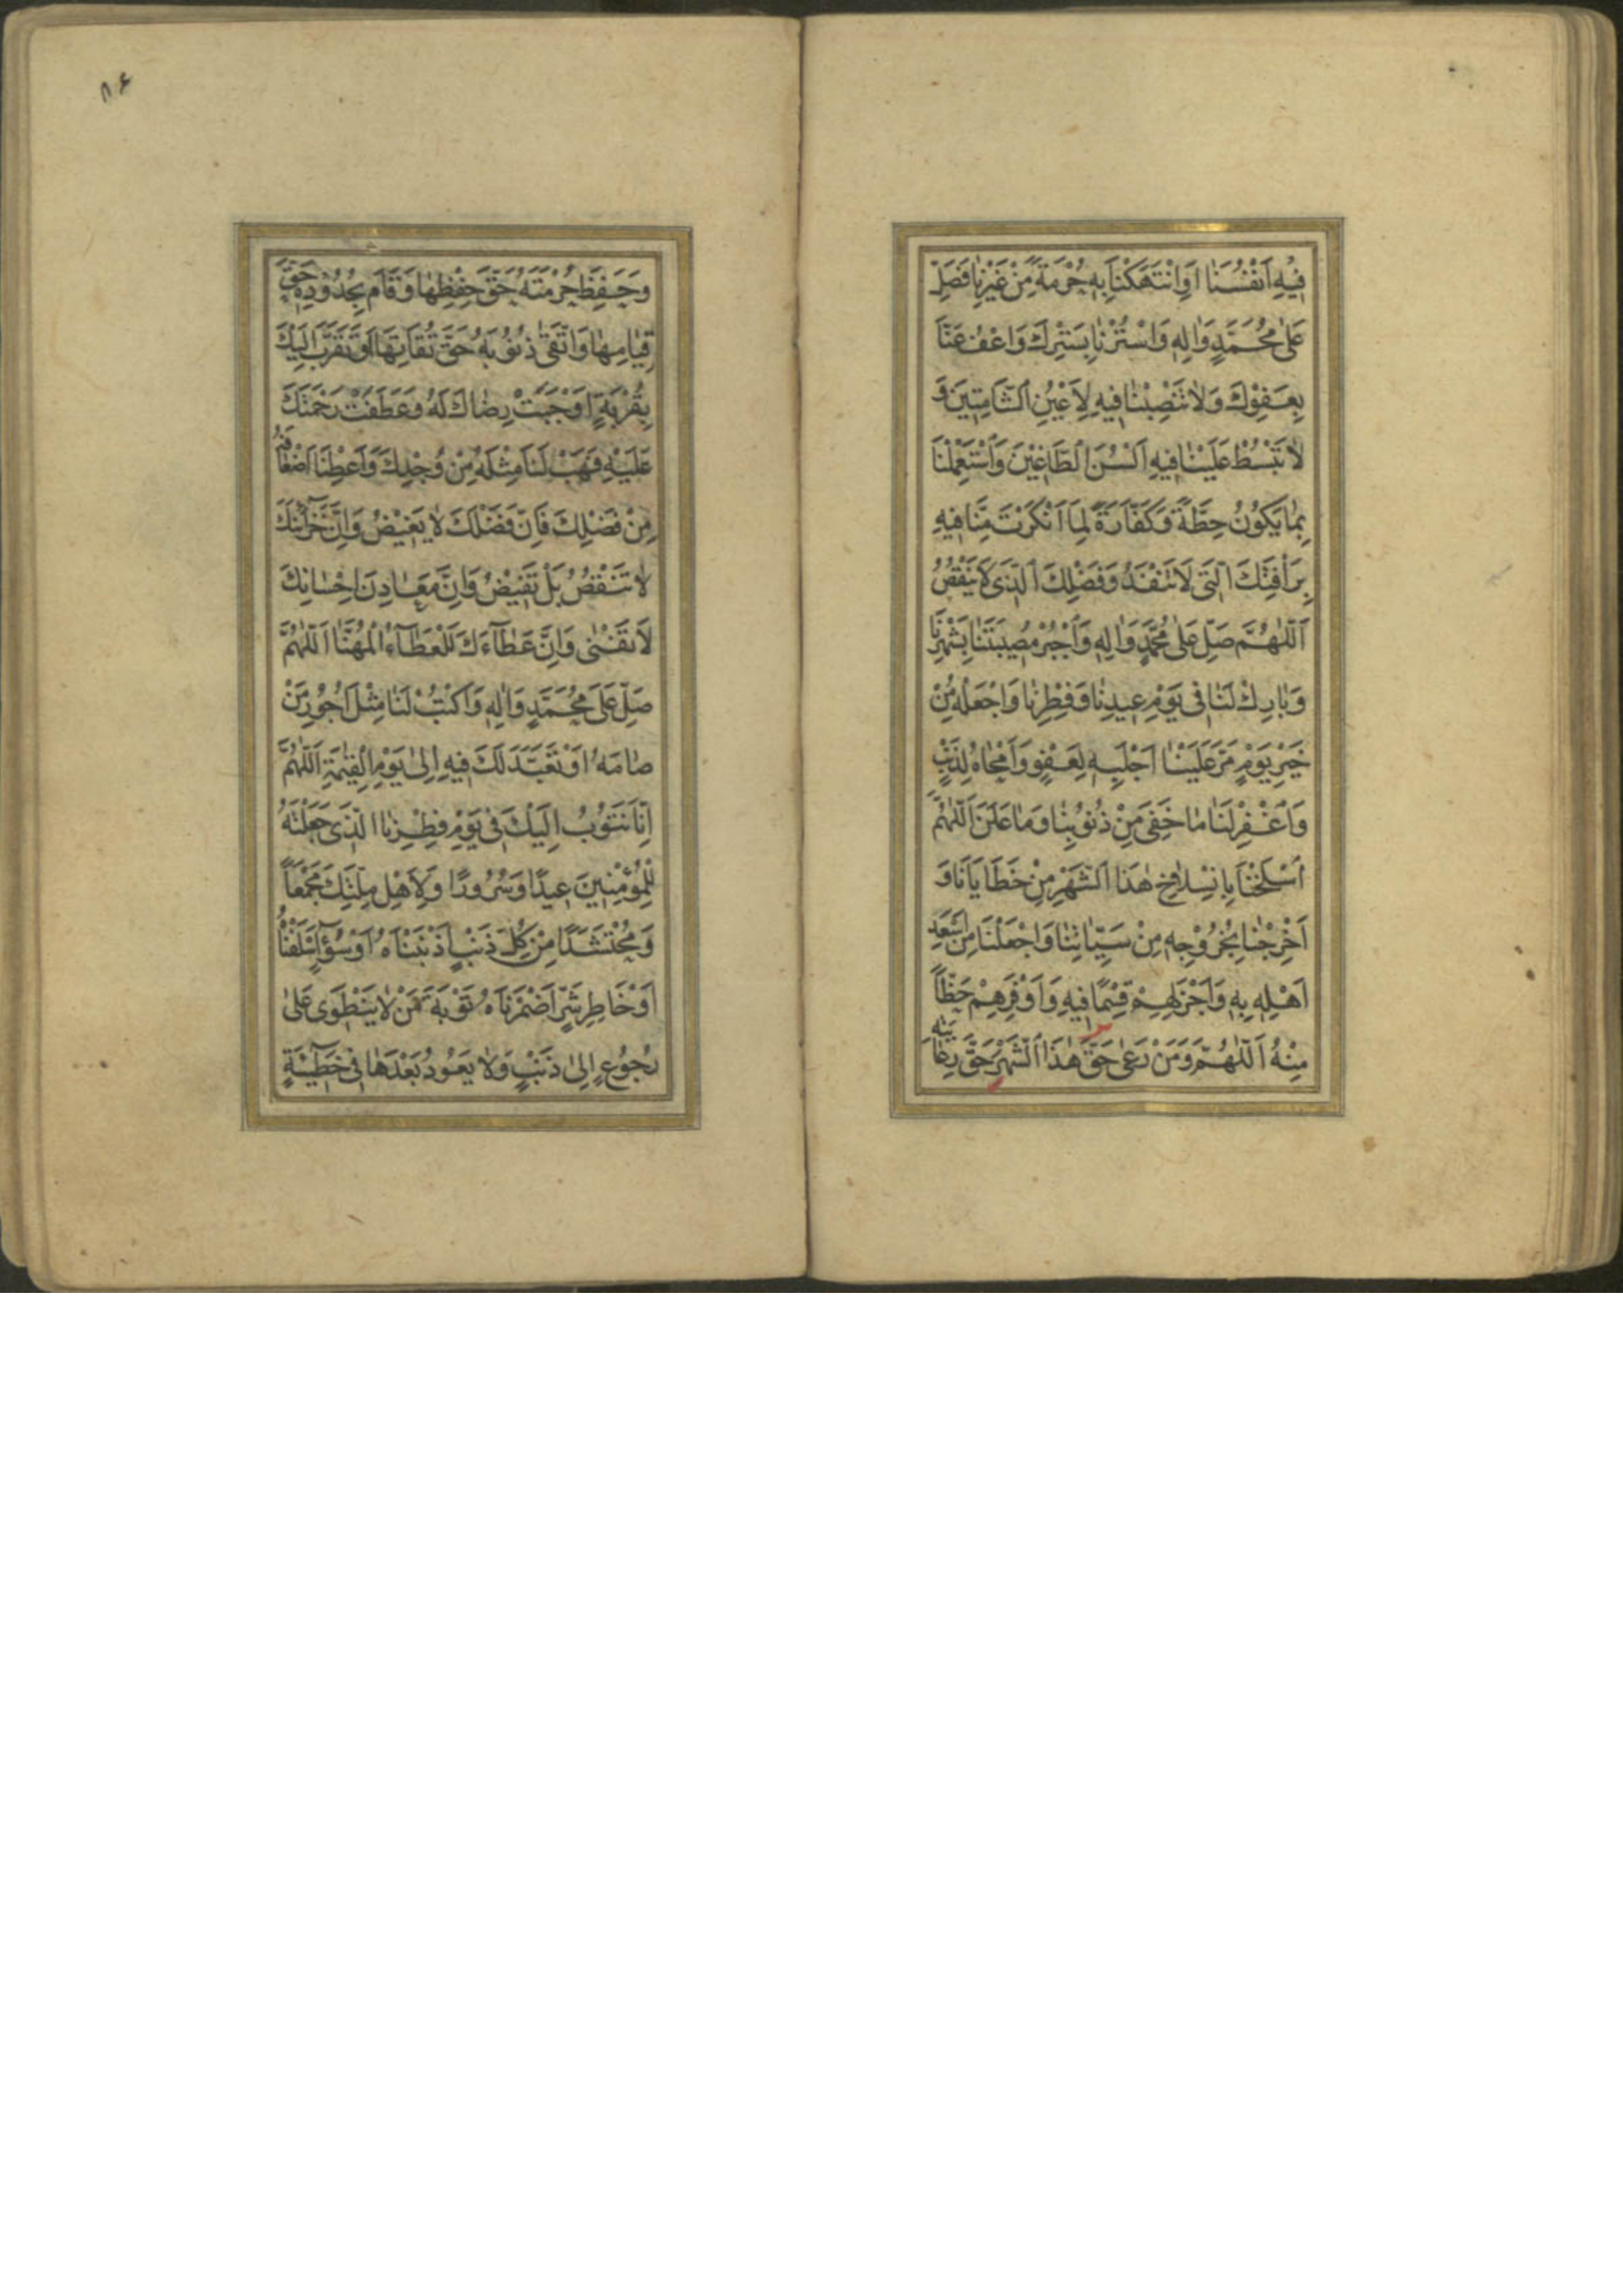 فِيهِ اَنْفُسَنَا اَوِ انْتَهَكْنَا بِهِ حُرْمَةً مِنْ غَيْرِنَا فَصَلِّ
عَلٰى مُحَمَّدٍ وَاٰلِهِ وَاسْتُرْنَا بِسَتْرِكَ وَاعْفُ عَنَّا
بِعَفْوِكَ وَلَا تَنْصِبْنَا فِيهِ لِاَعْيُنِ الشَّامِتِينَ وَ
لَا تَبْسُطْ عَلَيْنَا فِيهِ اَلْسُنَ الطَّاغِيْنَ وَاسْتَعْمِلْنَا
بِمَا يَكُوْنُ حِطَّةً وَكَفَّارَةً لِمَا اَنْكَرْتَ مِنَّا فِيهِ
بِرَأْفَتِكَ الَّتِى لَا تَنْفَدُ وَفَضْلِكَ الَّذِى لَا يَنْقُصُ
اَللّٰهُمَّ صَلِّ عَلٰى مُحَمَّدٍ وَاٰلِهِ وَاجْبُرْ مُصِيبَتَنَا بِشَهْرِنَا
وَبَارِكْ لَنَا فِى يَوْمِ عِيدِنَا وَفِطْرِنَا وَاجْعَلْهُ مِنْ
خَيْرِ يَوْمٍ مَرَّ عَلَيْنَا اَجْلَبِهِ لِعَفْوٍ وَاَمْحَاهُ لِذَنْبٍ
وَاغْفِرْ لَنَا مَا خَفِىَ مِنْ ذُنُوبِنَا وَمَا عَلَنَ اَللّٰهُمَّ
اسْلَخْنَا بِانْسِلَاخِ هٰذَا الشَّهْرِ مِنْ خَطَايَانَا وَ
اَخْرِجْنَا بِخُرُوْجِهِ مِنْ سَيِّئَاتِنَا وَاجْعَلْنَا مِنْ اَسْعَدِ
اَهْلِهِ بِهِ وَاَجْزَلِهِمْ قِسْمًا فِيهِ وَاَوْفَرِهِمْ حَظًّا
مِنْهُ اَللّٰهُمَّ وَمَنْ رَعٰى حَقَّ هٰذَا الشَّهْرِ حَقَّ رِعَايَتِهِ
۸۶
وَحَفِظَ حُرْمَتَهُ حَقَّ حِفْظِهَا وَقَامَ بِحُدُوْدِهِ حَقَّ
قِيَامِهَا وَاتَّقٰى ذُنُوبَهُ حَقَّ تُقَاتِهَا اَوْ تَقَرَّبَ اِلَيْكَ
بِقُرْبَةٍ اَوْجَبَتْ رِضَاكَ لَهُ وَعَطَفَتْ رَحْمَتَكَ
عَلَيْهِ فَهَبْ لَنَا مِثْلَهُ مِنْ وُجْدِكَ وَاَعْطِنَا اَضْعَافَهُ
مِنْ فَضْلِكَ فَاِنَّ فَضْلَكَ لَا يَغِيْضُ وَاِنَّ خَزَآئِنَكَ
لَا تَنْقُصُ بَلْ تَفِيْضُ وَاِنَّ مَعَادِنَ اِحْسَانِكَ
لَا تَفْنٰى وَاِنَّ عَطَآءَكَ لَلْعَطَآءُ الْمُهَنَّا اَللّٰهُمَّ
صَلِّ عَلٰى مُحَمَّدٍ وَاٰلِهِ وَاكْتُبْ لَنَا مِثْلَ اُجُوْرِ مَنْ
صَامَهُ اَوْ تَعَبَّدَ لَكَ فِيهِ اِلٰى يَوْمِ الْقِيٰمَةِ اَللّٰهُمَّ
اِنَّا نَتُوْبُ اِلَيْكَ فِى يَوْمِ فِطْرِنَا الَّذِى جَعَلْتَهُ
لِلْمُؤْمِنِينَ عِيدًا وَسُرُورًا وَلِاَهْلِ مِلَّتِكَ مَجْمَعًا
وَمُحْتَشَدًا مِنْ كُلِّ ذَنْبٍ اَذْنَبْنَاهُ اَوْ سُوْٓءٍ اَسْلَفْنَاهُ
اَوْ خَاطِرِ شَرٍّ اَضْمَرْنَاهُ تَوْبَةَ مَنْ لَا يَنْطَوِى عَلٰى
رُجُوْعٍ اِلٰى ذَنْبٍ وَلَا يَعُوْدُ بَعْدَهَا فِى خَطِٓيْئَةٍ